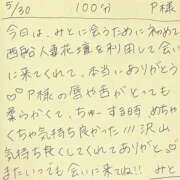 5/30 100分 P様
今日は、みとに会うために初めて
西船人妻花壇を利用して会い
に来てくれて、本当にありがとう
♡P様の唇や舌がとっても
柔らかくて、ちゅーする時めちゃ
くちゃ気持ち良かった///沢山
気持ち良くしてくれてありがと♡
またいつでも会いに来てね!! みと